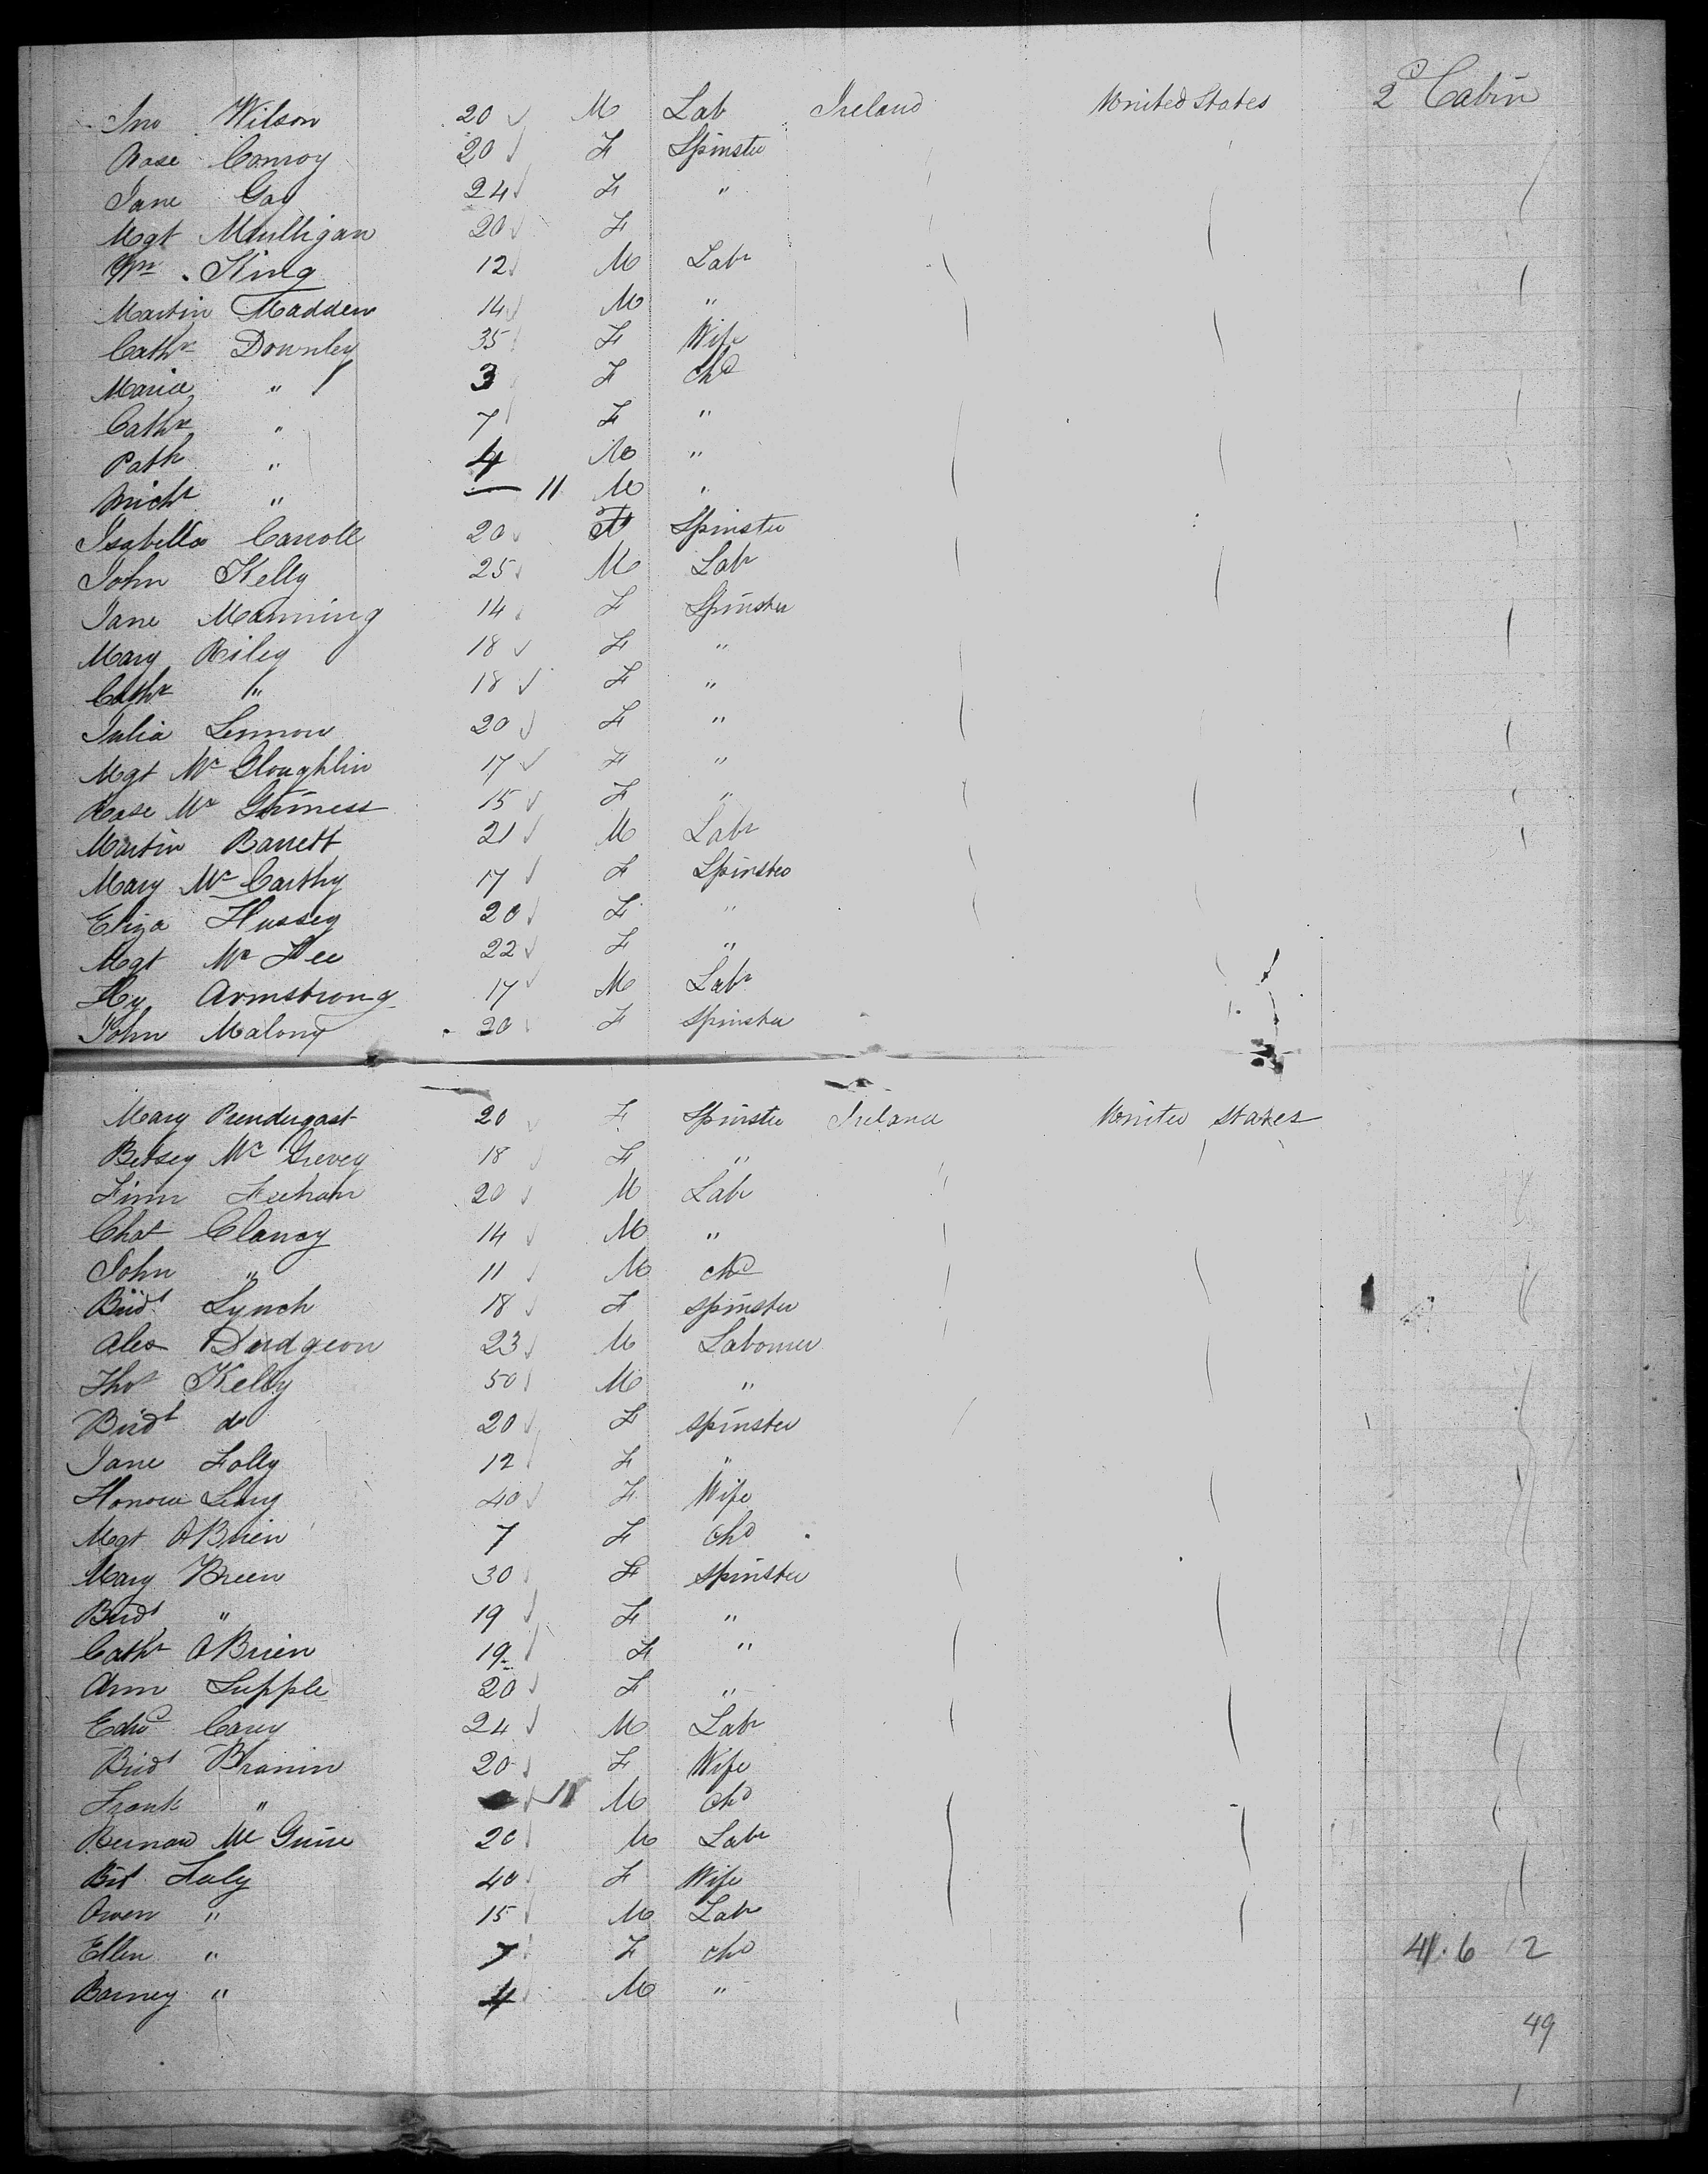 Jno Wilson 20 M Lab Ireland United States 2d Cabin
Rose Conroy 20 F Spinster
Jane Gay 24 F "
Mgt Mulligan 20 F
Wm King 12 M Labr
Martin Madden 14 M "
Cathe Downley 35 F Wife
Maria " 3 F chd
Cathe " 7 F "
Patk " 4 M "
Michl " 11 M "
Isabella Carroll 20 F Spinster
John Kelly 25 M Labr
Jane Manning 14 F Spinster
Mary Riley 18 F "
Cathe " 18 F "
Julia Lennon 20 F "
Mgt Mc Gloughlin 17 F "
Rose Mc Guiness 15 F "
Martin Barrett 21 M Labr
Mary Mc Carthy 17 F Spinster
Eliza Hussey 20 F "
Mgt Mc Fee 22 F "
Hy Armstrong 17 M Labr
John Malony 20 F Spinster
Mary Prendergast 20 F Spinster Ireland United States
Betsey Mc Grevey 18 F "
Finn Feehan 20 M Labr
Chas Clancy 14 M "
John " 11 M chd
Bridt Lynch 18 F spinster
Alex Dudgeon 23 M Labourer
Thos Kelly 50 M "
Bridt do 20 F spinster
Jane Folly 12 F "
Honora 40 F Wife
Mgt OBrien 7 F chd
Mary Breen 30 F spinster
Bridt " 19 F "
Cathe OBrien 19 F "
Ann Supple 20 F "
Edwd Carey 24 M Labr
Bridt Branin 20 F Wife
Frank " 11 M chd
Bernard Mc Guire 20 M Labr
Bit Luly 40 F Wife
Owen " 15 M Labr
Ellen " 7 F chd 41. 6 12
Barney " 4 M "
49